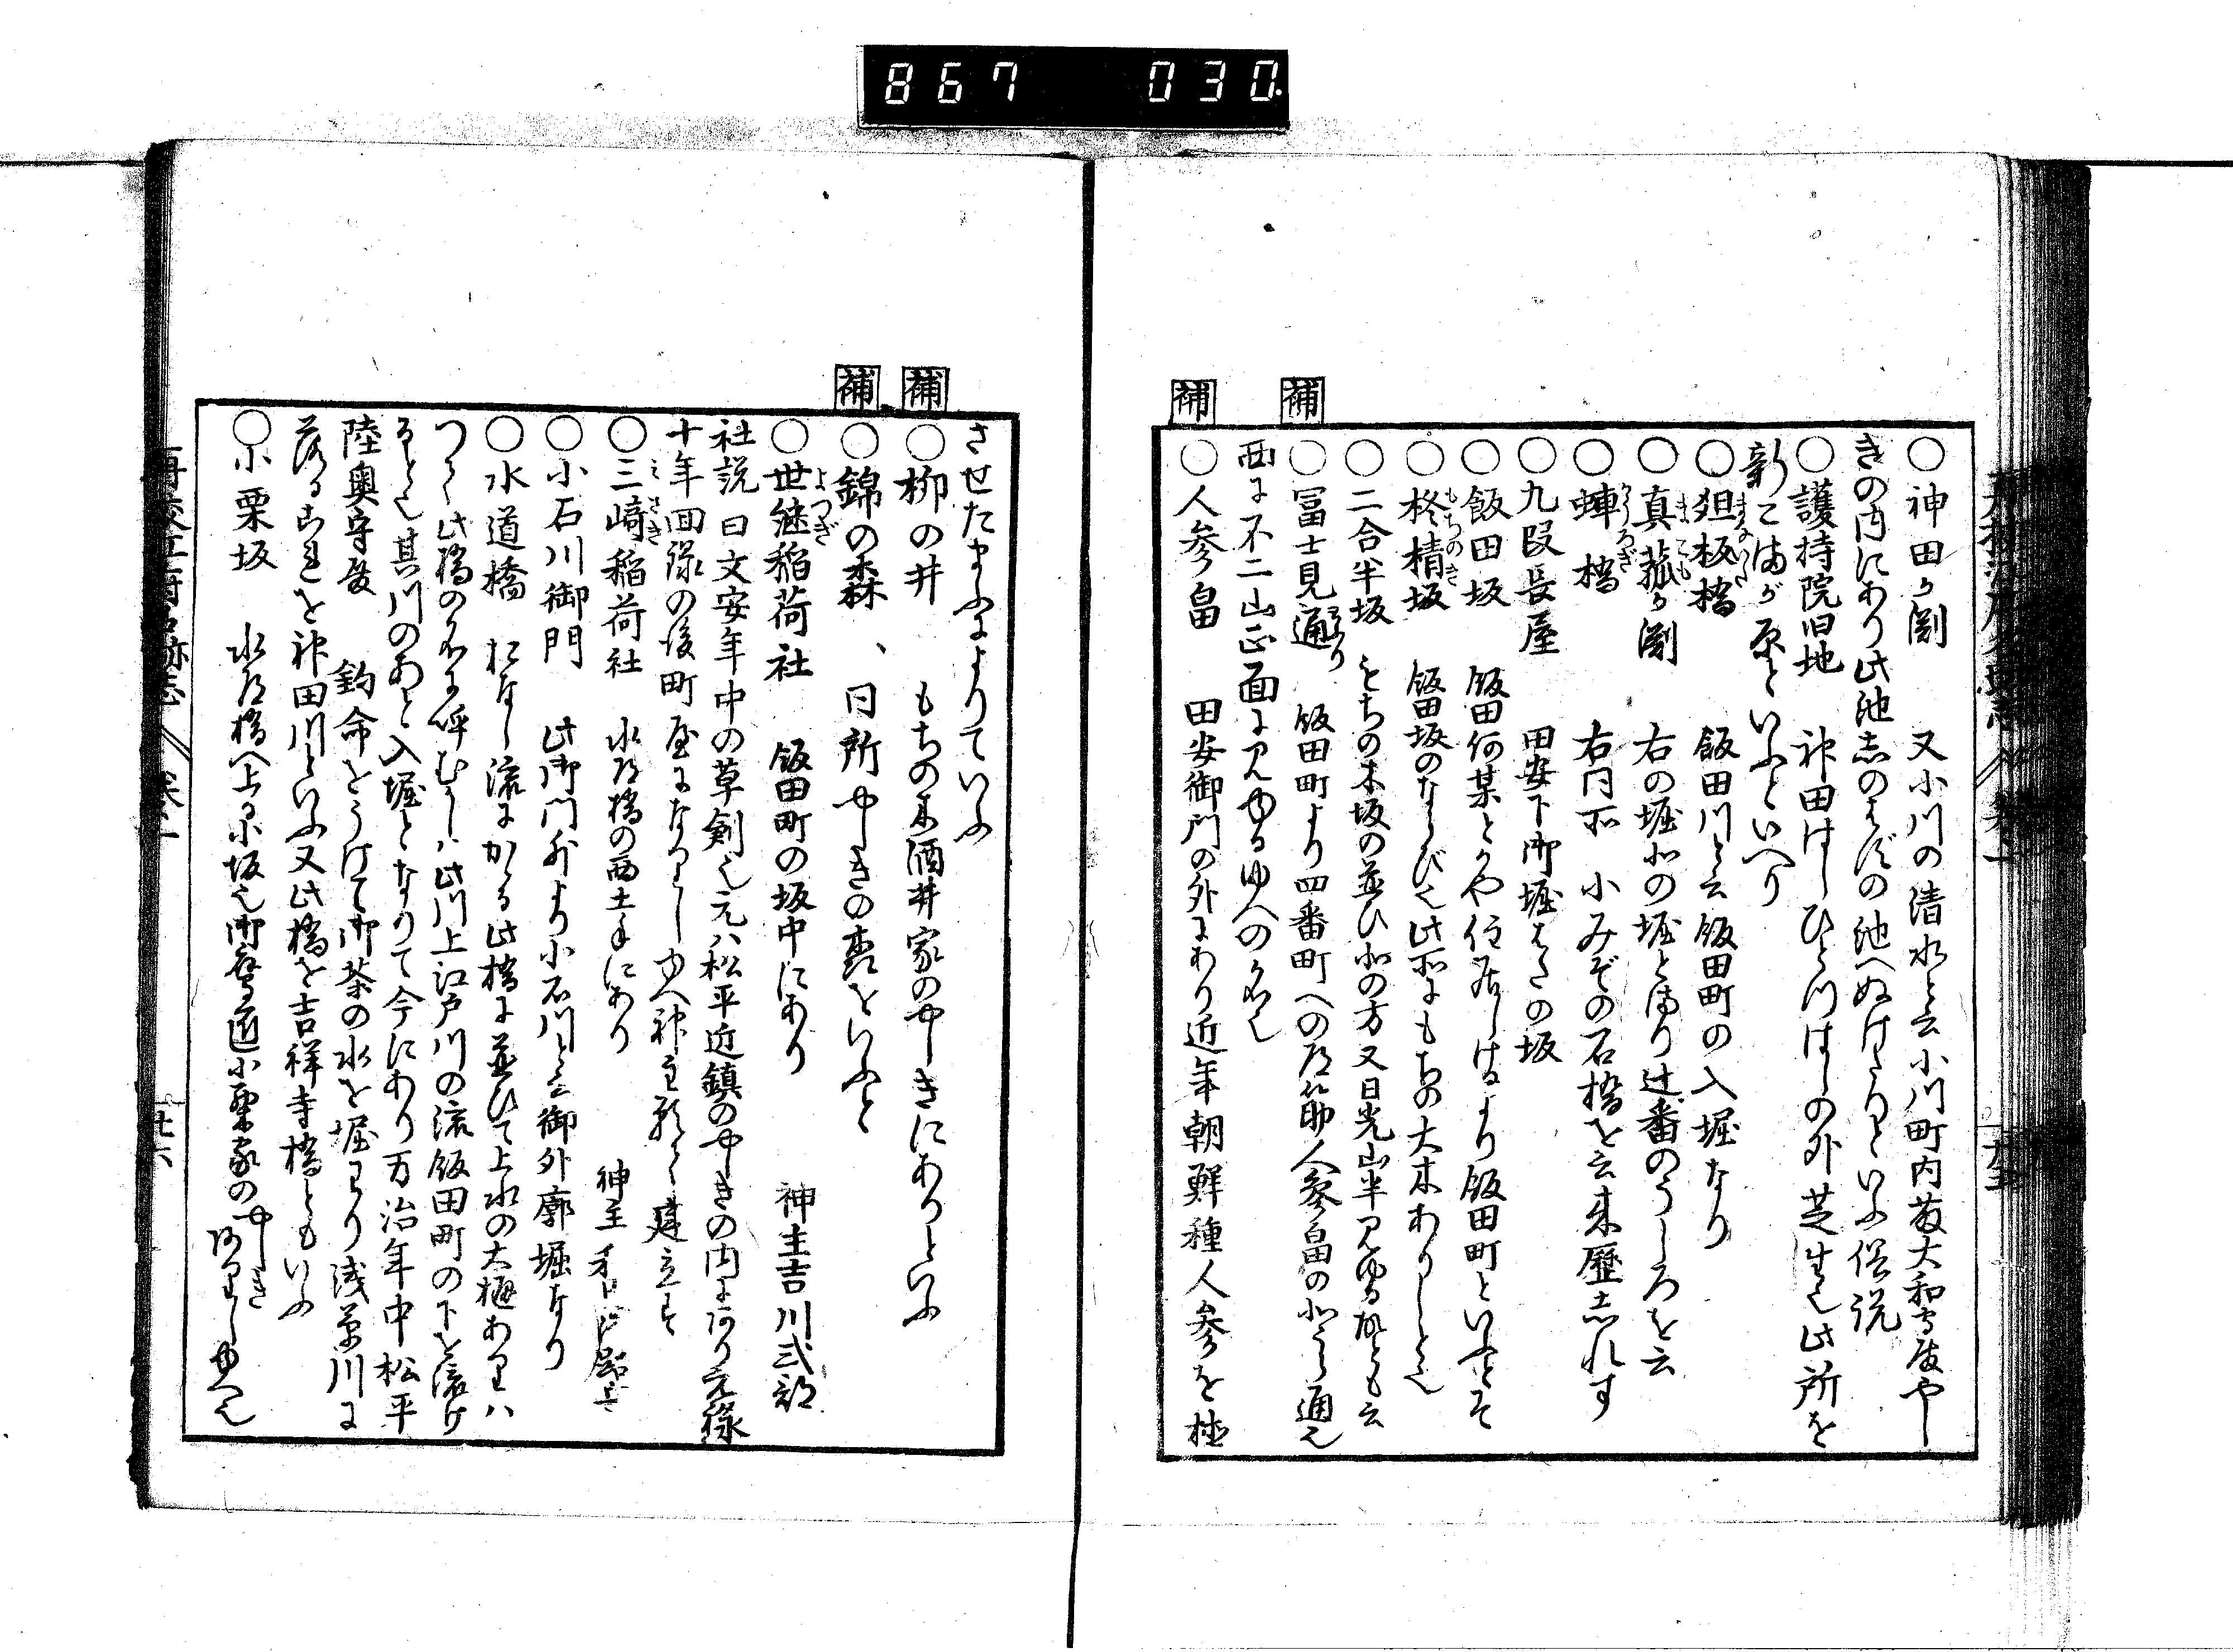 867 030.
○神田ヶ淵 又小川の清水と云小川町内藤大和守殿やし
きの内にあり此池志のはずの池へぬけたりといふ俗説
○護持院旧地 神田はしひとつはしの外芝生也此所を
新こまが原といふといへり
○爼板橋 飯田川と云飯田町の入堀なり
まないた
○真菰ヶ淵 右の堀北の堀とまり辻番のうしろを云
まこも
○蟀橋 右同所 小みぞの石橋を云来歴志れす
こうろぎ
○九段長屋 田安下御堀はたの坂
○飯田坂 飯田何某とかや住居しけるより飯田町といふとそ
○柊椿坂 飯田坂のならび也此所にもちの大木ありしと也
もちのき
○二合半坂 もちの木坂の並ひ北の方又日光山半見ゆる故とも云
補
○冨士見通 飯田町より四番町への道筋人参畠の北うら通也
とをり
西に不二山正面に見ゆるゆへの名也
補
○人参畠 田安御門の外にあり近年朝鮮種人参を植
させたまふによりていふ
補
○柳の井 もちの木酒井家のやしきにありといふ
補
○錦の森 同所やしきの裏をいふと
○世継稲荷社 飯田町の坂中にあり 神主吉川式部
よつぎ
社説曰文安年中の草創也元ハ松平近鎮のやしきの内にあり元禄
十年回禄の後町屋になりしゆへ神主願て建立す
○三﨑稲荷社 水道橋の西土手にあり 神主
みさき
○小石川御門 此御門外より小石川と云御外廓堀なり
○水道橋 おなし流にかかる此橋に並ひて上水の大樋あれハ
つゝ此橋の名に呼むかしハ此川上江戸川の流飯田町の下を流け
ると也其川のあと入堀となりて今にあり万治年中松平
陸奥守殿 釣命をうけて御茶の水を堀わり浅草川に
落るこれを神田川といふ又此橋を吉祥寺橋ともいふ
○小栗坂 水道橋へ上る小坂也御鷹匠小栗家のやしき
ありしゆへ也
再校江戸名跡志 巻之一
廿六